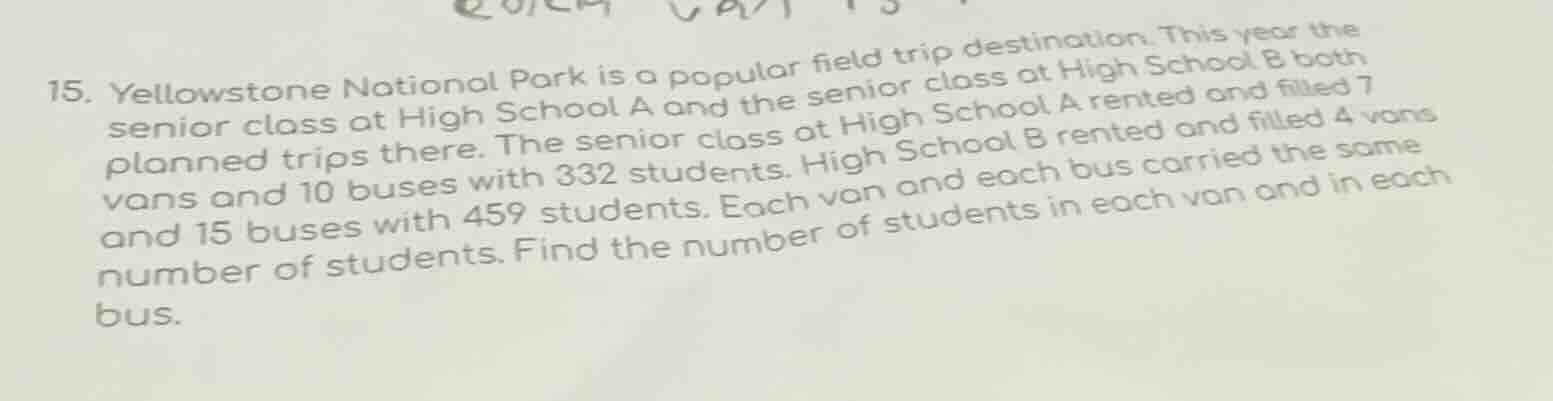 15. Yellowstone National Park is a popular field trip destination. This year the
senior class at High School A and the senior class at High School B both
planned trips there. The senior class at High School A rented and filled 7
vans and 10 buses with 332 students. High School B rented and filled 4 vans
and 15 buses with 459 students. Each van and each bus carried the same
number of students. Find the number of students in each van and in each
bus.